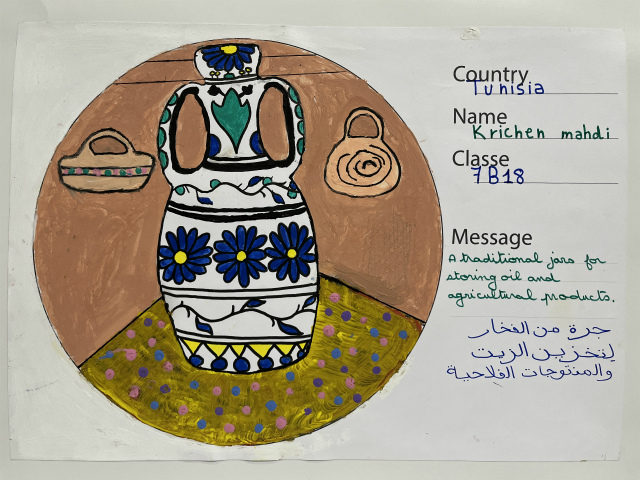 Country
Tunisia
Name
Krichen mahdi
Classe
7B18
Message
A traditional jars for
storing oil and
agricultural products.
جرة من الفخار
لتخزين الزيت
والمنتوجات الفلاحية